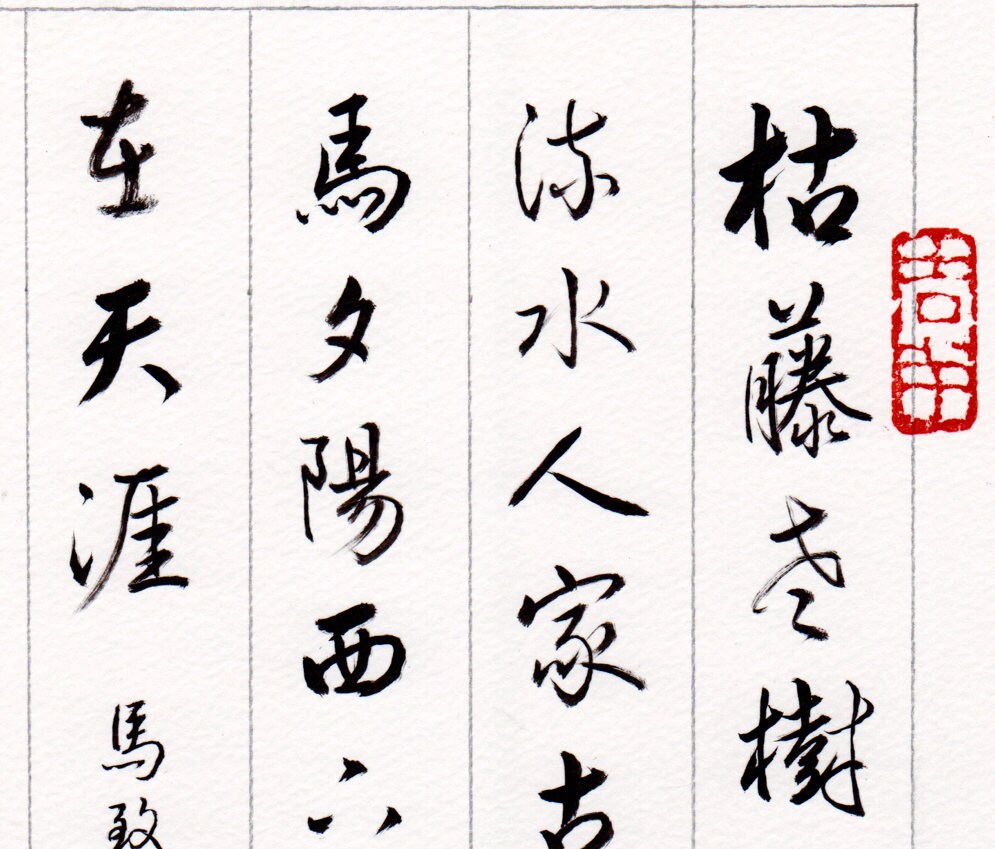 枯藤老樹
流水人家古
馬夕陽西下
在天涯 馬致